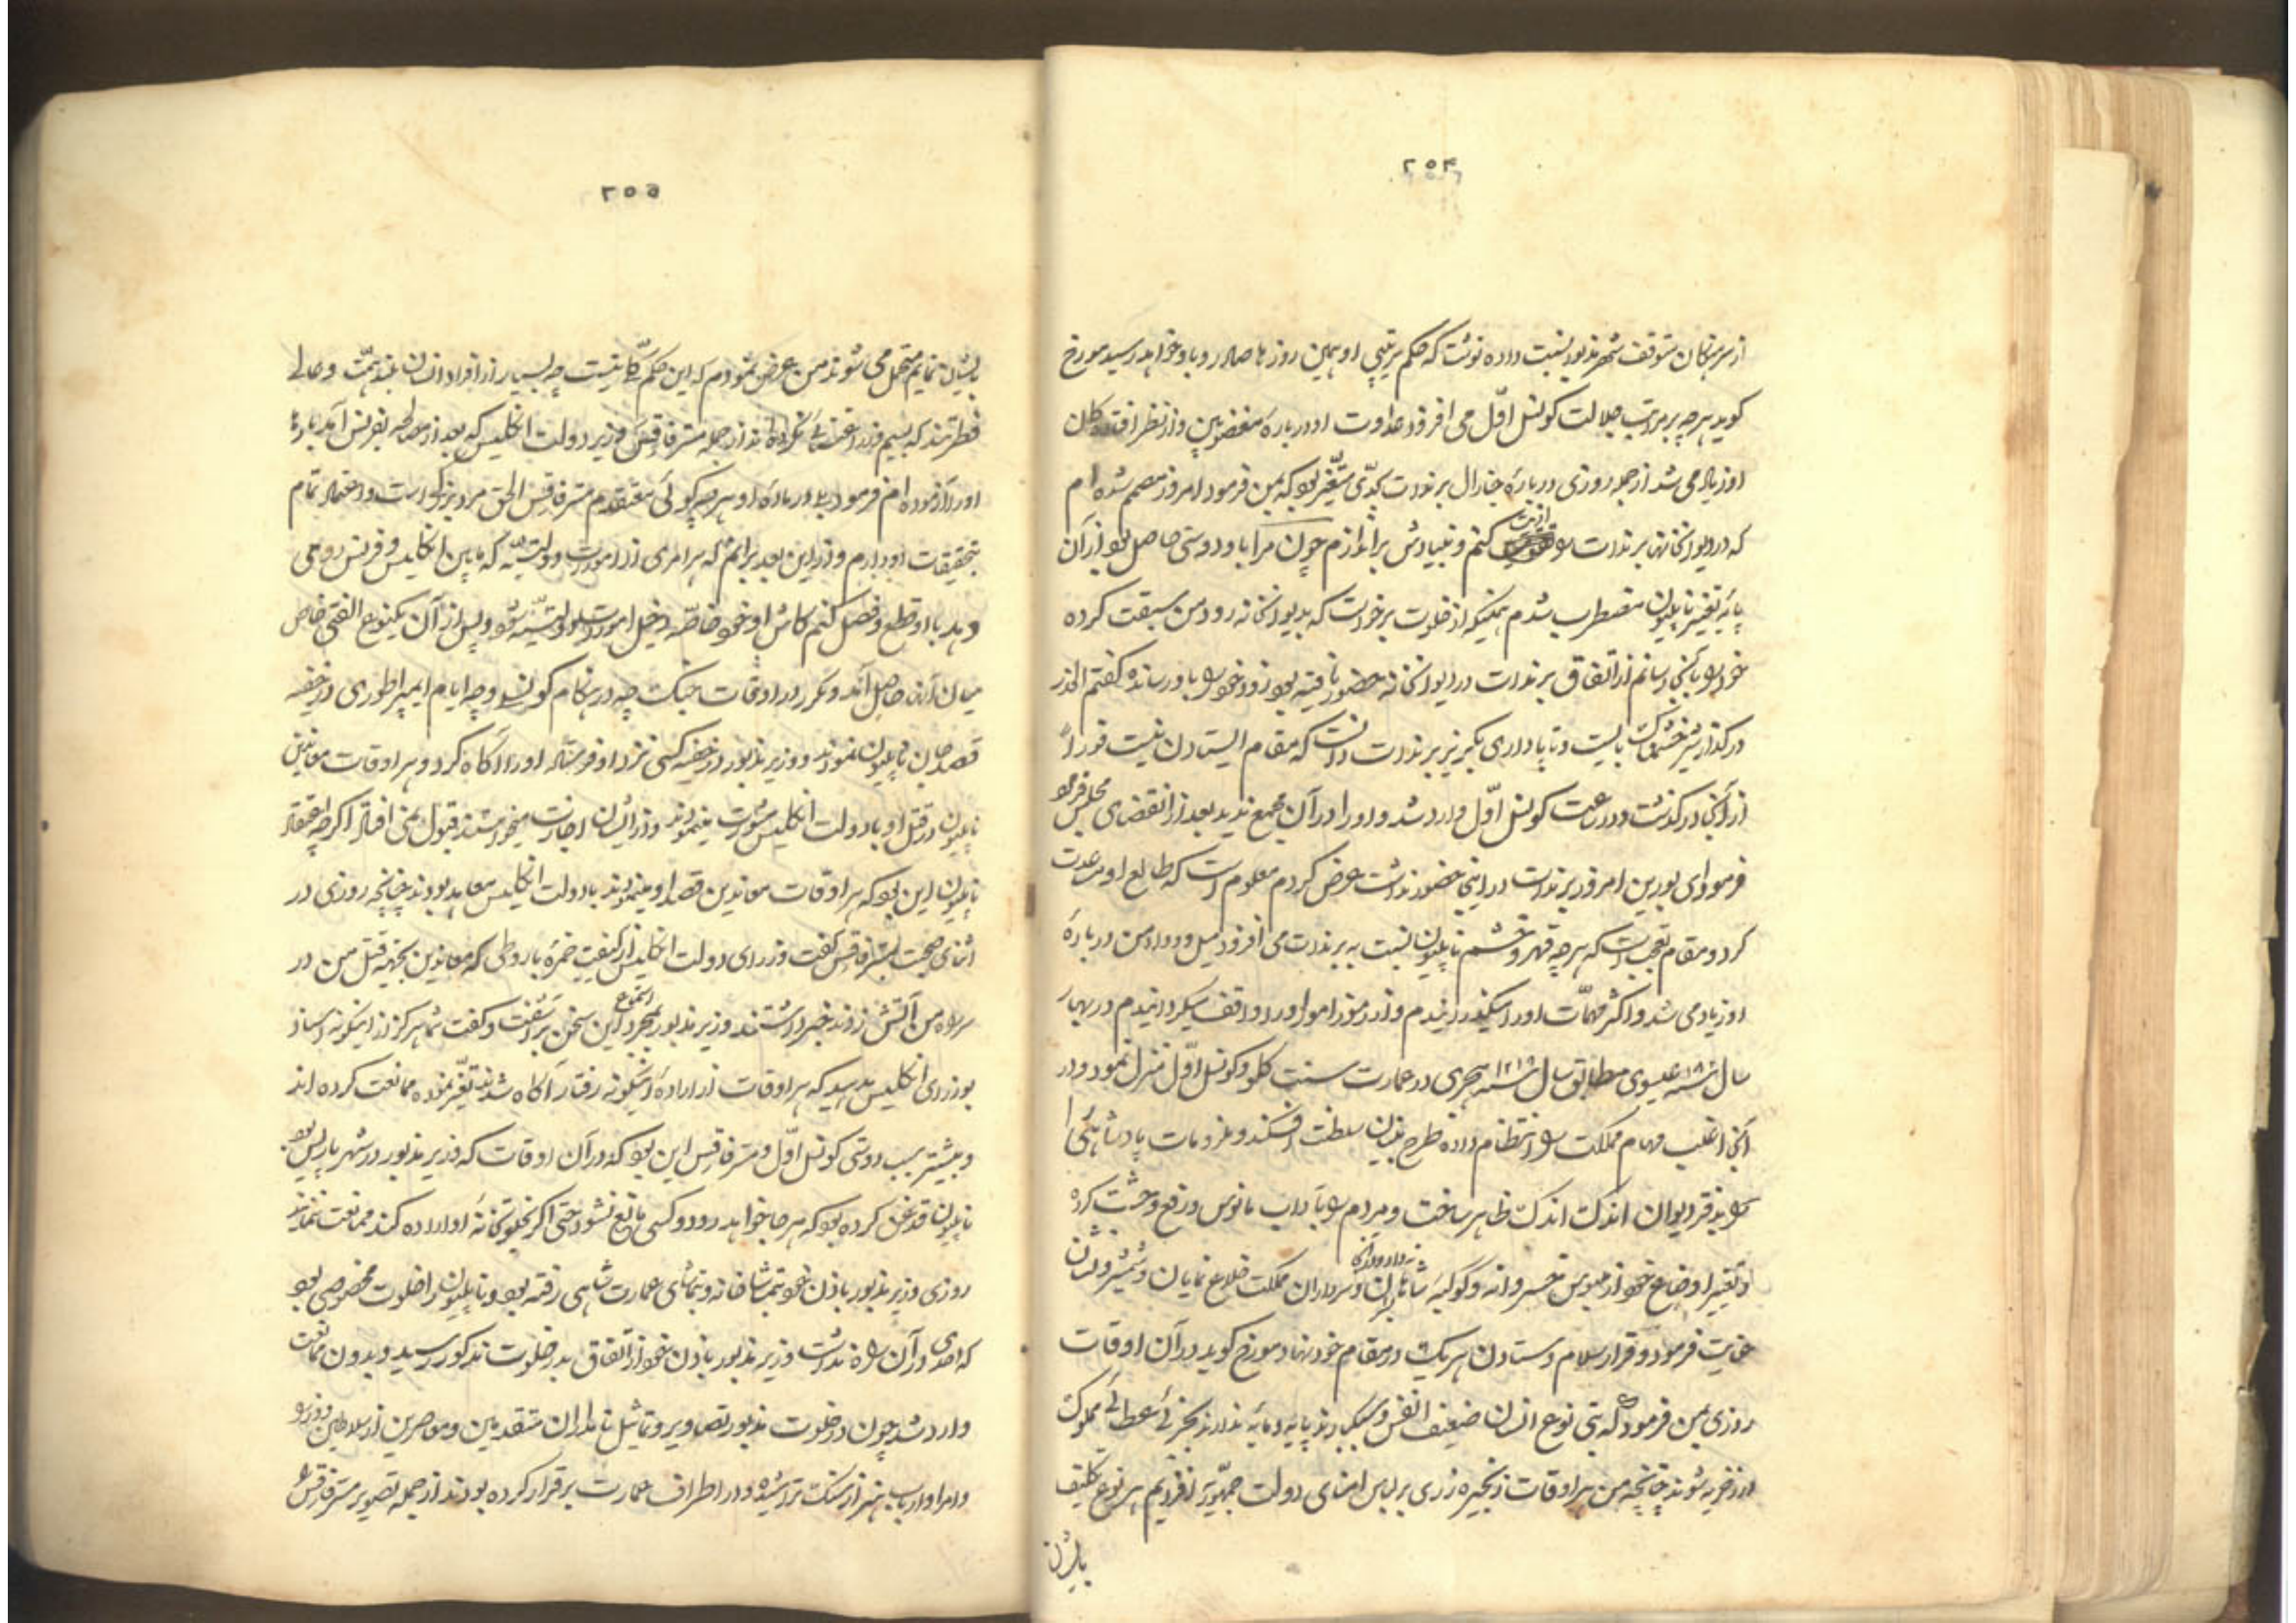 ۲۵۴
از سرهنگان متوقف شهر مذبور نسبت داده نوشت که حکم سرتیپی او همین روزها صادر و باو خواهد رسید مورخ
کوید هرچه بر مراتب جلالت کونسل اوّل می افزود عداوت او درباره مغضوبین و از نظر افتاده کان
او زیاد می شد از جمله روزی درباره جنرال برندات بحدّی متغیّر بود که بمن فرمود امروز مصمم شده ام
که در دیوانخانه برندات را اذیت کنم و بنیادش براندازم چون مرا با او دوستی حاصل بود از آن
پایه تغییر ناپلیون مضطرب شدم همینکه از خلوت برخواست که بدیوانخانه رود من سبقت کرده
خود را بآنجا رسانم از اتفاق برندات در دیوانخانه حضور یافته بود زود خود را باو رسانده کفتم الحذر
در کذار شیر خشمناک بایست و تا پا داری بکریز برندات دانست که مقام ایستادن نیست فوراً
از آنجا درکذشت و در ساعت کونسل اوّل وارد شد و او را در آن مجمع ندید بعد از انقضای مجلس فرمود
فرمود ای بورین امروز برندات در اینجا حضور نداشت عرض کردم معلوم است که طالع او مساعدت
کرد و مقام تعجب است که هرچه قهر و خشم ناپلیون نسبت به برندات می افزود میل و وداد من درباره
او زیاد می شد و اکثر مهمّات او را میکذراندم و از رموز امور او را واقف میکردانیدم در بهار
سال ۱۸۰۰ عیسوی مطابق سال ۱۲۱۸ هجری در عمارت سنت کلو کونسل اوّل منزل نمود و در
آنجا اغلب مهام مملکت را انتظام داده طرح بنیان سلطنت افکند و ملزومات پادشاهی را
در دفتر دیوان اندک اندک ظاهر ساخت و مردم را بآداب مانوس و رفع وحشت کرده
و تغییر اوضاع خود از جلوس خسروانه و کوکبه شاهانه داد و بزرکان و سرداران مملکت خلاع نمایان و شمشیر و نشان
عنایت فرمود و قرار سلام و ستادن هر یک در مقام خود نهاد مورخ کوید در آن اوقات
روزی بمن فرمود که بنی نوع انسان ضعیف النفس و سبکبارند پایه و مایه ندارند بجزئی عطائی مملوک
و زرخرید شوند چنانچه من هر اوقات زنجیره زری بر لباس امنای دولت جمهوریّه افزودیم هر نوع تکلیف
بایشان
۲۵۵
بایشان نمایم متحمل می شوند من عرض نمودم که این حکم کلّی نیست چه بسیار از افراد انسان بلند همّت و عالی
فطرتند که بسیم و زر اعتنائی نکرده اند از جمله مستر فاقس وزیر دولت انکلیس که بعد از مصالحه بفرنس آمد بارها
او را آزموده ام فرمود بلی درباره او هرچه کوئی معتقدم مستر فاقس الحق مرد بزرکی است و اعتماد تمام
بتحقیقات او دارم و از این بعد برانم که هر امری از امورات دولتیّه که مابین انکلیس و فرنس روی
دهد با او قطع و فصل کنم کاش او خود خاصّه دخیل امورات دولتیّه شود و پس از آن یکنوع الفتی خاص
میان آنان حاصل آمد و مکرر در اوقات جنک چه در هنکام کونسلی و چه ایام ایمپراطوری در خفیه
قصد جان ناپلیون نمودند و وزیر مذبور در خفیه کسی نزد او فرستاد او را آکاه کرد و هر اوقات معاندین
ناپلیون در قتل او با دولت انکلیس مشورت مینمودند و از ایشان اجازت میخواستند قبول نمی افتاد اکرچه اعتقاد
ناپلیون این بود که هر اوقات معاندین قصد او مینمودند با دولت انکلیس معاهد بودند چنانچه روزی در
اثنای صحبت بمستر فاقس کفت وزرای دولت انکلیس از کیفیت خمره باروطی که معاندین بجهة قتل من در
سر راه من آتش زدند خبر داشتند وزیر مذبور بمجرد استماع این سخن برآشفت و کفت شما هرکز از اینکونه اسناد
بوزرای انکلیس مدهید که هر اوقات از اراده اینکونه رفتار آکاه شدند تغیّر نموده ممانعت کرده اند
و بیشتر سبب دوستی کونسل اوّل و مستر فاقس این بود که در آن اوقات که وزیر مذبور در شهر پاریس بود
ناپلیون قدغن کرده بود که هر جا خواهد رود و کسی مانع نشود حتی اکر بخلوتخانه او اراده کند ممانعت ننمایند
روزی وزیر مذبور باذن خود بتماشاخانه و تماشای عمارت شاهی رفته بود و ناپلیون را خلوت مخصوصی بود
که احدی در آن راه نداشت وزیر مذبور باذن خود از اتفاق بدر خلوت مذکور رسید و بدون ممانعت
وارد شد چون در خلوت مذبور تصاویر و تماثیل نامداران متقدمین و معاصرین از سلاطین و وزرا
و امرا و ارباب هنر از سنک تراشیده و در اطراف عمارت برقرار کرده بودند از جمله تصویر مستر فاقس را